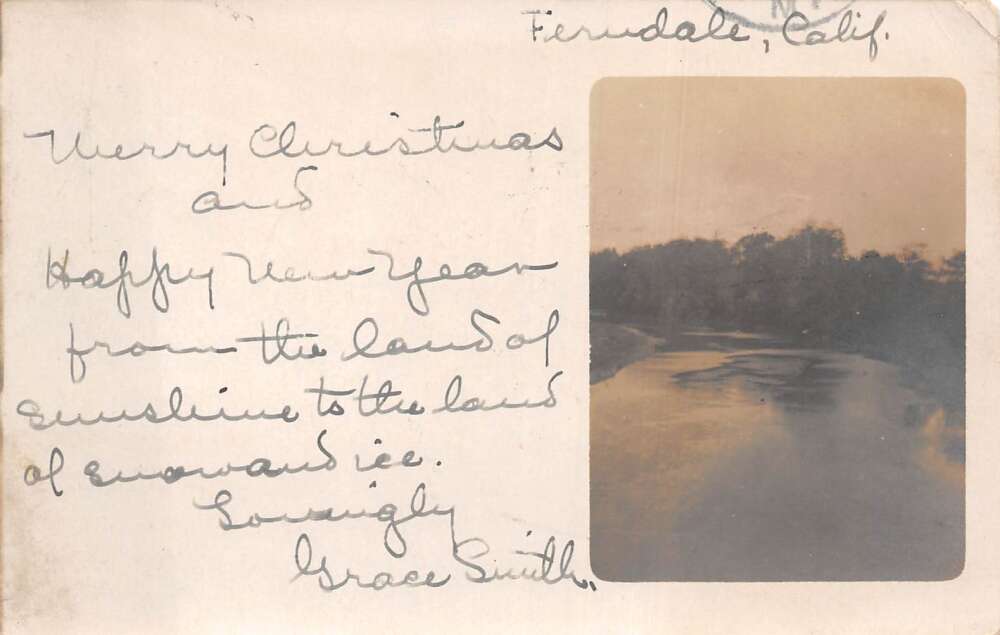 Ferndale, Calif.
Merry Christmas
and
Happy New Year
from the land of
sunshine to the land
of snow and ice.
Lovingly
Grace Smith.